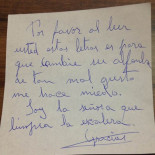 Por favor al leer
usted estas letras es para
que cambie su alfombra
de tan mal gusto
me hace miedo.
Soy la señora que
limpiea la escalera.
Gracias